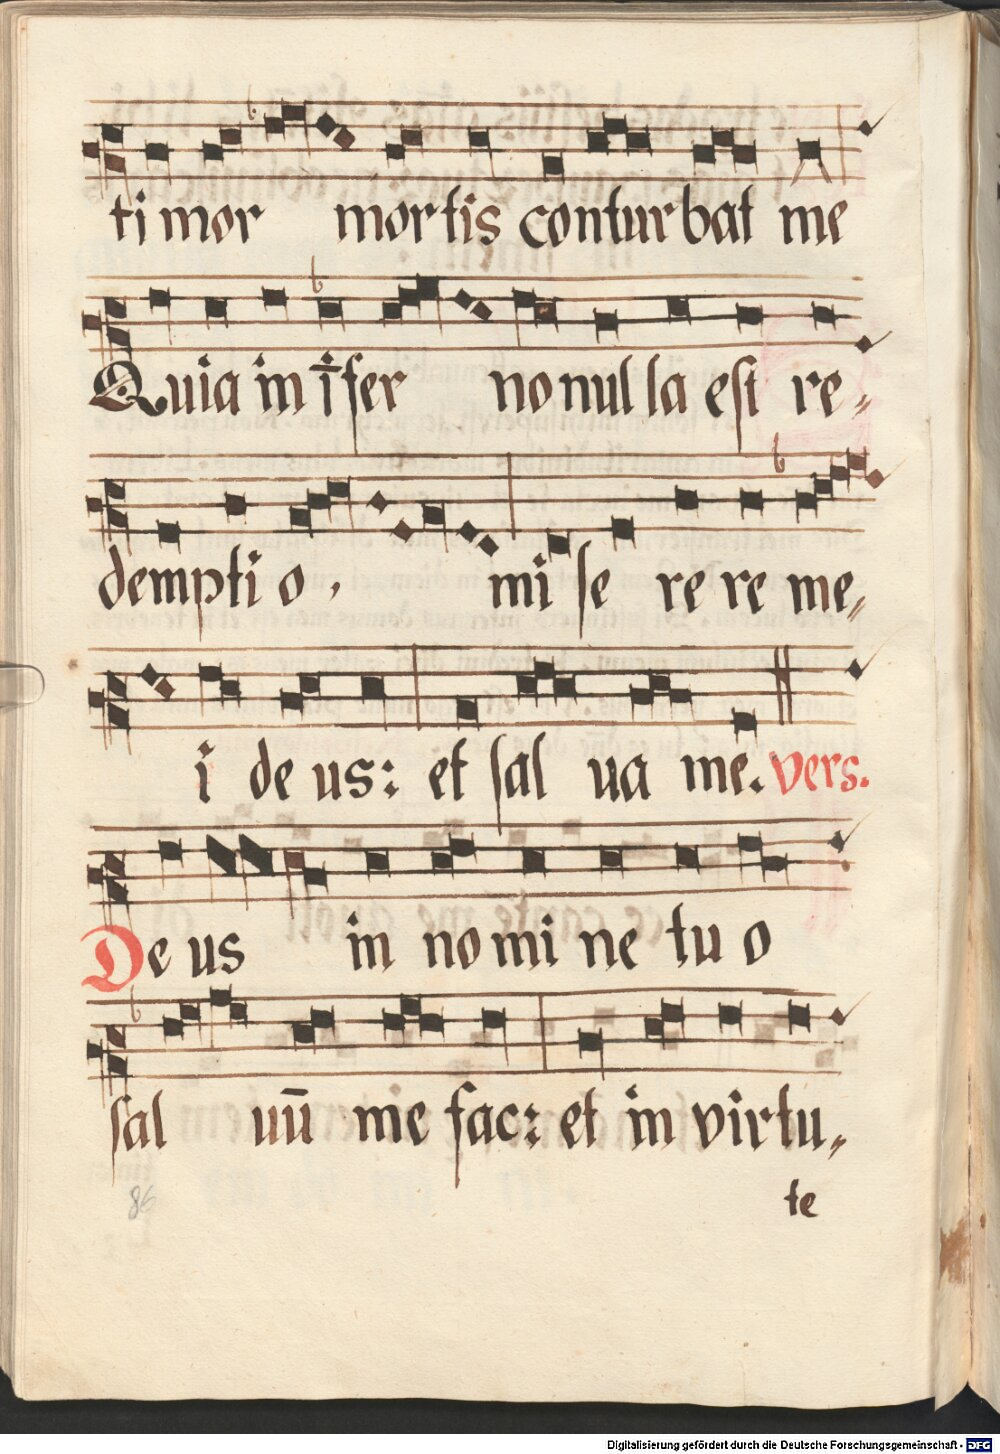 timor mortis conturbat me
Quia in īfer no nulla est re-
demptio, miserere me-
i deus: et salua me. vers.
Deus in nomine tuo
saluū me fac: et in virtu-
te
86
Digitalisierung gefördert durch die Deutsche Forschungsgemeinschaft - DFG